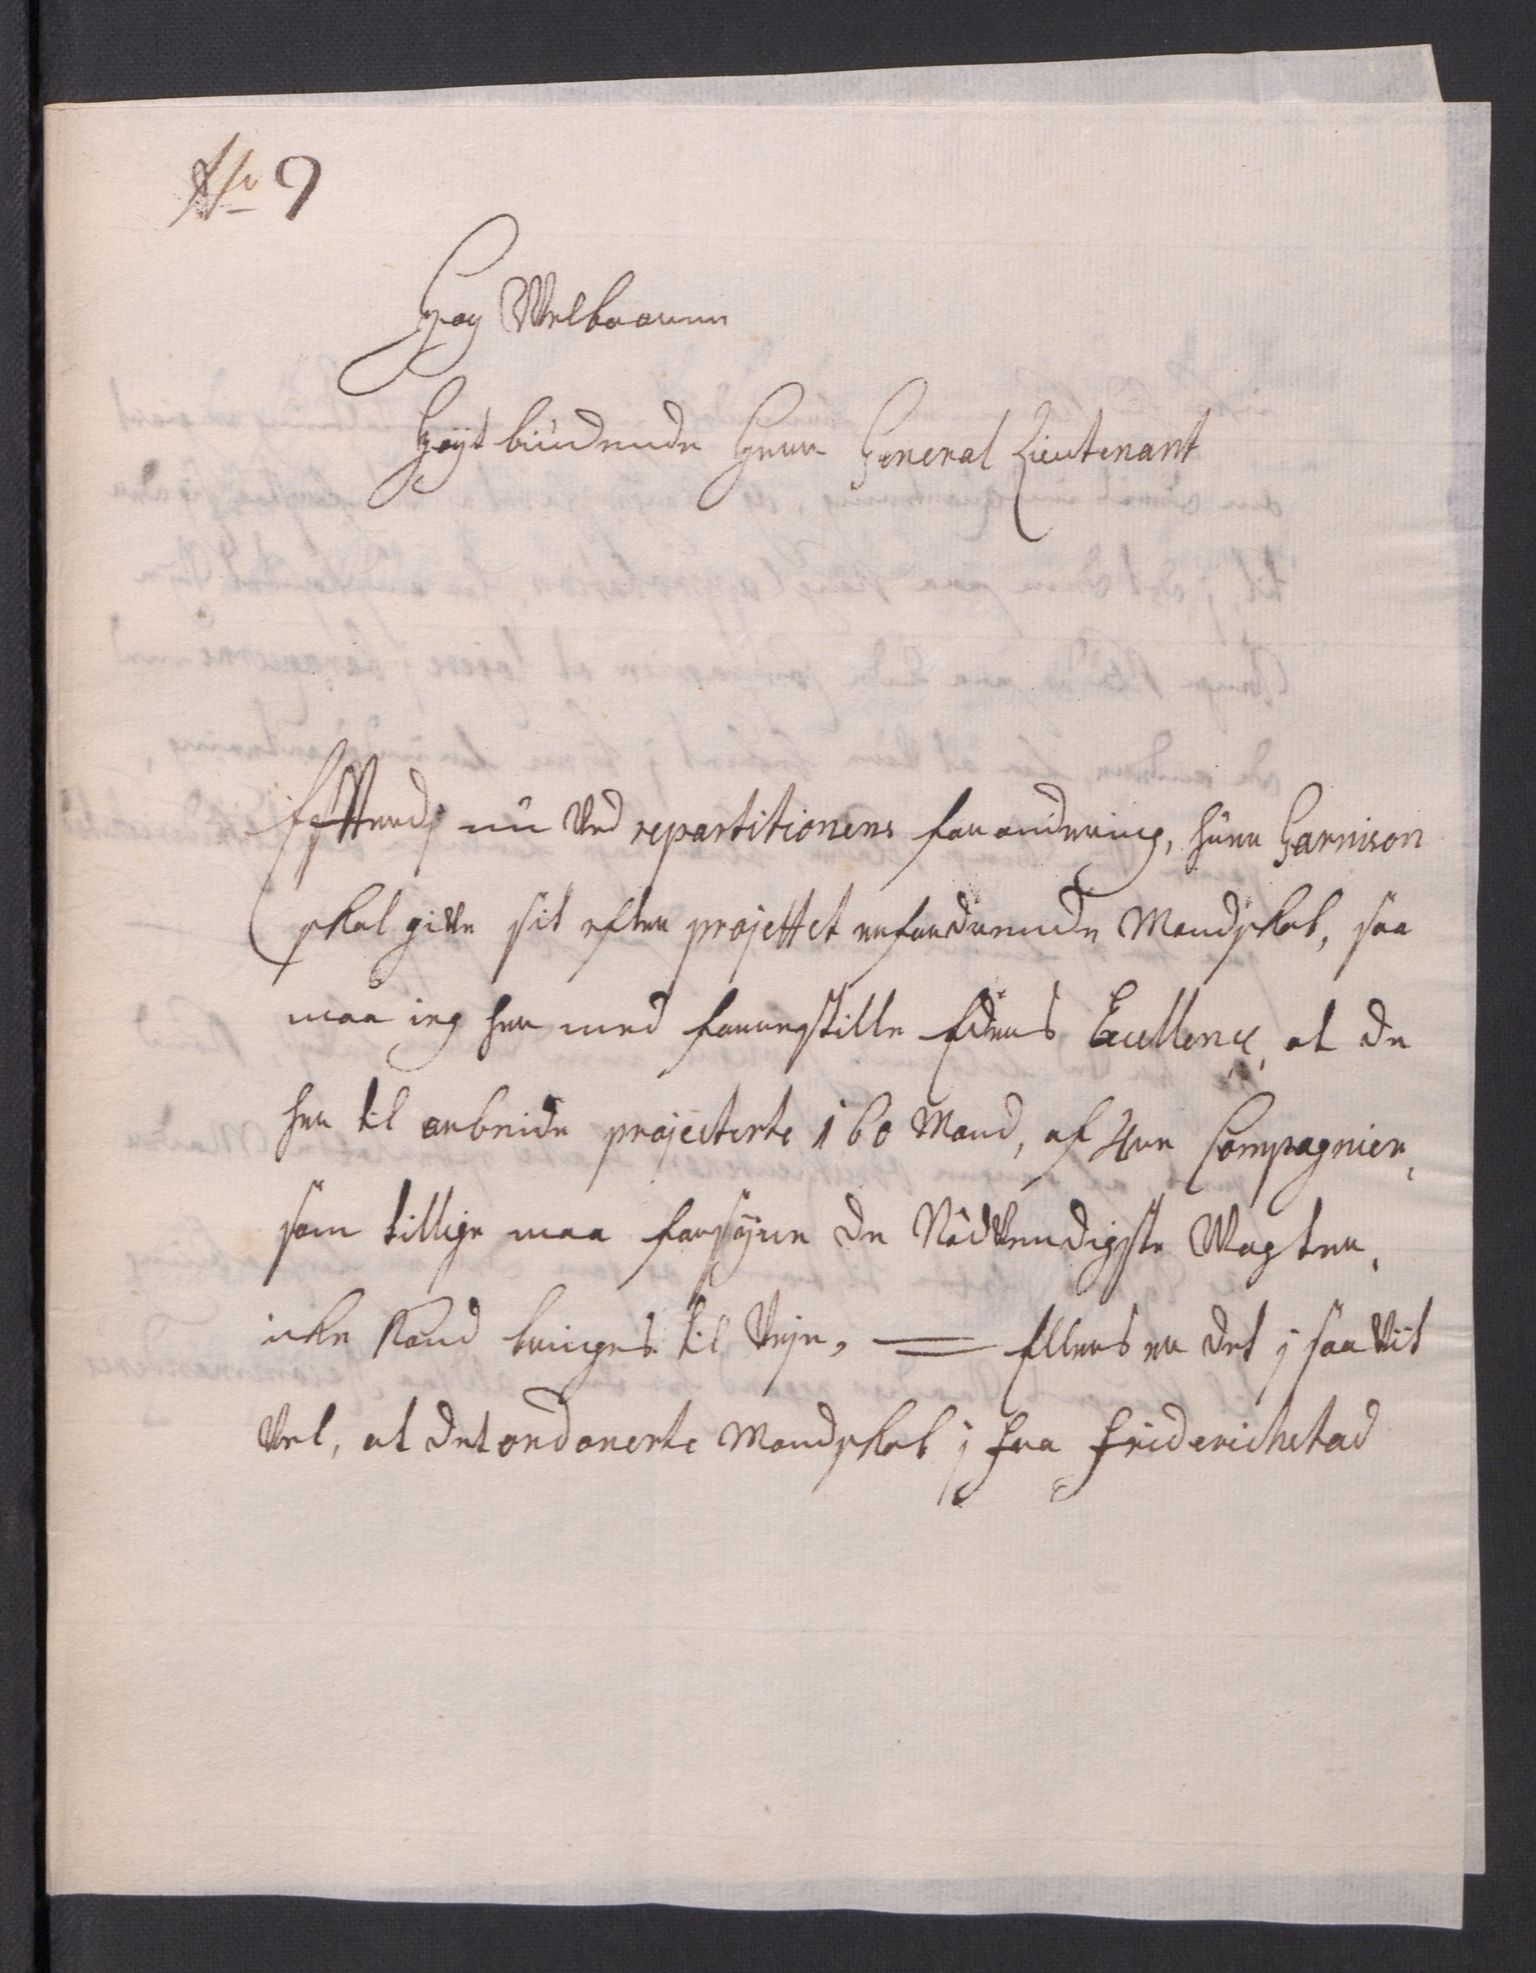 No 9
Høy Welbaarne
Høyt biudende Herr General Lieutenant
Efftterdj nu ved repartitionens forandring, hver Garnison
skal give sit efter projettet erfordrende Mandskab, saa
maa ieg her med forrestille Eders Excellence, at de
her til arbeide projecterte 160 Mand, af 4re Compagnier,
som tillige maa forsÿne de Nödvendigste Wagter,
icke kand bringes til veje, — Ellers er det j saa viit
vel, at det ordonerte Mandskab j fra Friderichstad